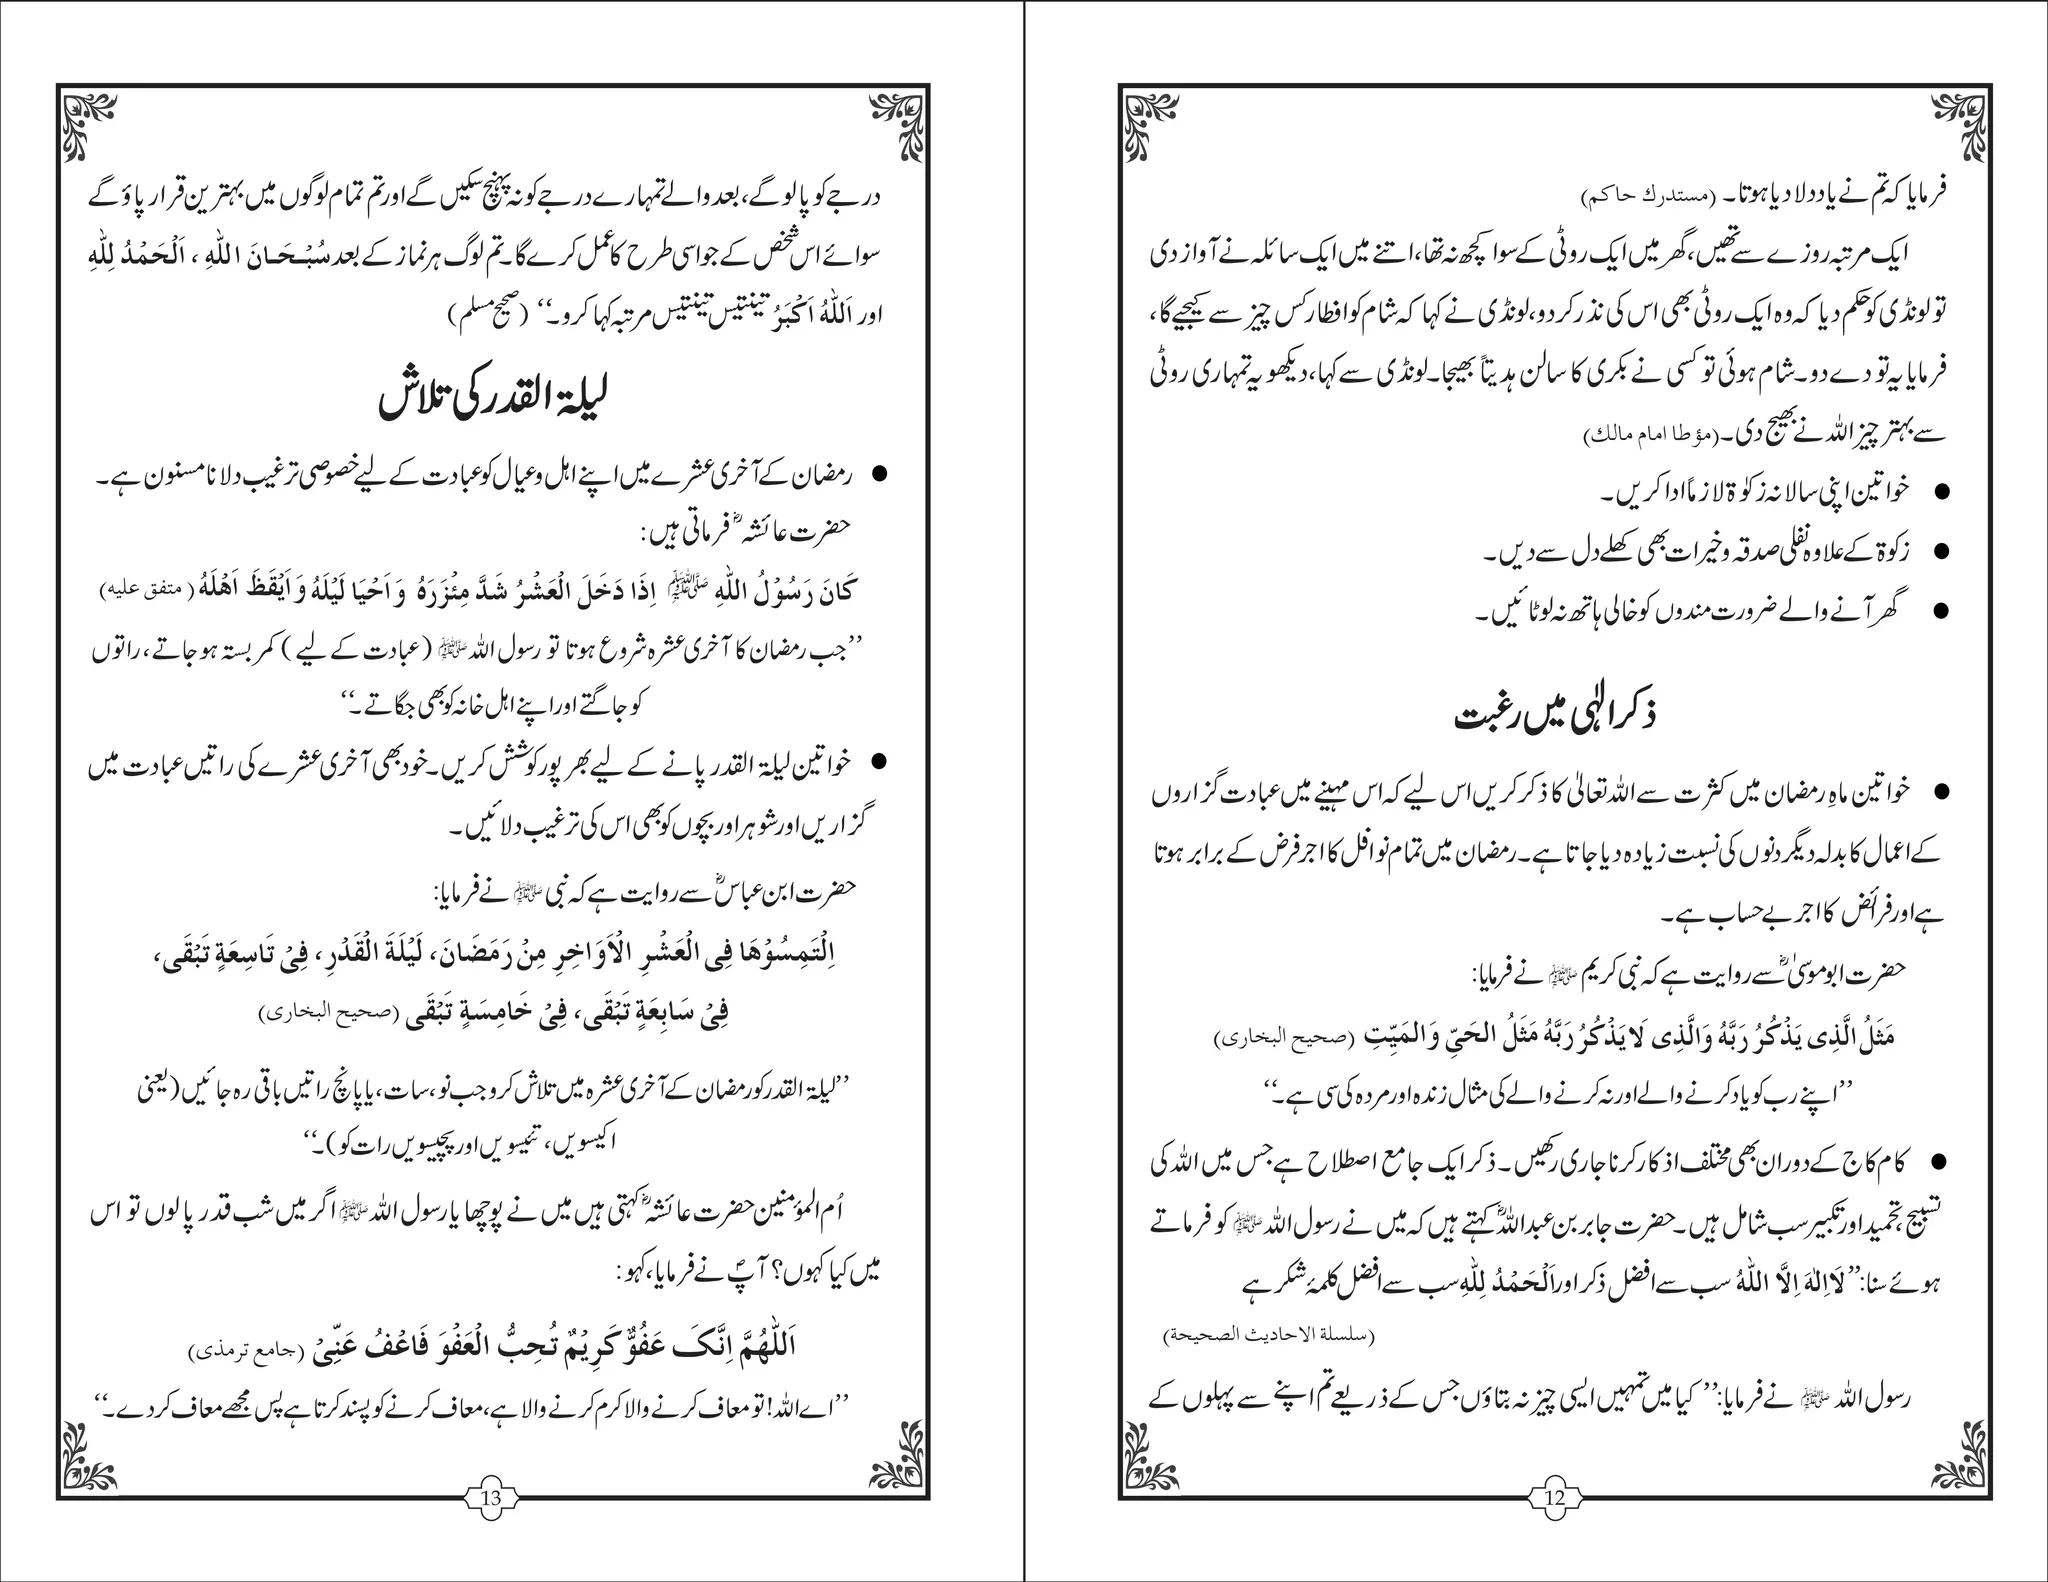 فرمایا کہ تم نے یاد دلا دیا ہوتا۔ (مستدرك حاكم)
ایک مرتبہ روزے سے تھیں، گھر میں ایک روٹی کے سوا کچھ نہ تھا، اتنے میں ایک سائلہ نے آواز دی
تو لونڈی کو حکم دیا کہ وہ ایک روٹی بھی اس کی نذر کردو، لونڈی نے کہا کہ شام کو افطار کس چیز سے کیجیے گا،
فرمایا یہ تو دے دو۔ شام ہوئی تو کسی نے بکری کا سالن ہدیتاً بھیجا۔ لونڈی سے کہا، دیکھو یہ تمہاری روٹی
سے بہتر چیز اللہ نے بھیج دی۔ (مؤطا امام مالك)
● خواتین اپنی سالانہ زکوٰۃ لازماً ادا کریں۔
● زکوۃ کے علاوہ نفلی صدقہ و خیرات بھی کھلے دل سے دیں۔
● گھر آنے والے ضرورت مندوں کو خالی ہاتھ نہ لوٹائیں۔
ذکر الٰہی میں رغبت
● خواتین ماہِ رمضان میں کثرت سے اللہ تعالیٰ کا ذکر کریں اس لیے کہ اس مہینے میں عبادت گزاروں
کے اعمال کا بدلہ دیگر دنوں کی نسبت زیادہ دیا جاتا ہے۔ رمضان میں تمام نوافل کا اجر فرض کے برابر ہوتا
ہے اور فرائض کا اجر بے حساب ہے۔
حضرت ابو موسیٰؓ سے روایت ہے کہ نبی کریم ﷺ نے فرمایا:
مَثَلُ الَّذِی یَذْکُرُ رَبَّهُ وَالَّذِی لَا یَذْکُرُ رَبَّهُ مَثَلُ الحَیِّ وَالمَیِّتِ (صحیح البخاری)
’’اپنے رب کو یاد کرنے والے اور نہ کرنے والے کی مثال زندہ اور مردہ کی سی ہے۔‘‘
● کام کاج کے دوران بھی مختلف اذکار کرنا جاری رکھیں۔ ذکر ایک جامع اصطلاح ہے جس میں اللہ کی
تسبیح، تحمید اور تکبیر سب شامل ہیں۔ حضرت جابر بن عبداللہؓ کہتے ہیں کہ میں نے رسول اللہ ﷺ کو فرماتے
ہوئے سنا: ’’لَا اِلٰهَ اِلَّا اللهُ سب سے افضل ذکر اور اَلْحَمْدُ لِلّٰهِ سب سے افضل کلمۂ شکر ہے
(سلسلة الاحادیث الصحیحة)
رسول اللہ ﷺ نے فرمایا: ’’کیا میں تمہیں ایسی چیز نہ بتاؤں جس کے ذریعے تم اپنے سے پہلوں کے
12
درجے کو پالو گے، بعد والے تمہارے درجے کو نہ پہنچ سکیں گے اور تم تمام لوگوں میں بہترین قرار پاؤ گے
سوائے اس شخص کے جو اسی طرح کا عمل کرے گا۔ تم لوگ ہر نماز کے بعد سُبْحَانَ اللهِ ، اَلْحَمْدُ لِلّٰهِ
اور اَللهُ اَکْبَرُ تینتیس تینتیس مرتبہ کہا کرو۔‘‘ (صحیح مسلم)
لیلۃ القدر کی تلاش
● رمضان کے آخری عشرے میں اپنے اہل و عیال کو عبادت کے لیے خصوصی ترغیب دلانا مسنون ہے۔
حضرت عائشہؓ فرماتی ہیں:
کَانَ رَسُوْلُ اللهِ ﷺ اِذَا دَخَلَ الْعَشْرُ شَدَّ مِئْزَرَهُ وَ اَحْیَا لَیْلَهُ وَ اَیْقَظَ اَهْلَهُ (متفق علیه)
’’جب رمضان کا آخری عشرہ شروع ہوتا تو رسول اللہ ﷺ (عبادت کے لیے) کمر بستہ ہو جاتے، راتوں
کو جاگتے اور اپنے اہل خانہ کو بھی جگاتے۔‘‘
● خواتین لیلۃ القدر پانے کے لیے بھر پور کوشش کریں۔ خود بھی آخری عشرے کی راتیں عبادت میں
گزاریں اور شوہر اور بچوں کو بھی اس کی ترغیب دلائیں۔
حضرت ابن عباسؓ سے روایت ہے کہ نبی ﷺ نے فرمایا:
اِلْتَمِسُوْهَا فِی الْعَشْرِ الْاَوَاخِرِ مِنْ رَمَضَانَ، لَیْلَةَ الْقَدْرِ، فِیْ تَاسِعَةٍ تَبْقَی،
فِیْ سَابِعَةٍ تَبْقَی، فِیْ خَامِسَةٍ تَبْقَی (صحیح البخاری)
’’لیلۃ القدر کو رمضان کے آخری عشرہ میں تلاش کرو جب نو، سات، یا پانچ راتیں باقی رہ جائیں (یعنی
اکیسویں، تئیسویں اور پچیسویں رات کو)۔‘‘
اُم المؤمنین حضرت عائشہؓ کہتی ہیں میں نے پوچھا یا رسول اللہ ﷺ اگر میں شب قدر پالوں تو اس
میں کیا کہوں؟ آپؐ نے فرمایا، کہو:
اَللّٰهُمَّ اِنَّکَ عَفُوٌّ کَرِیْمٌ تُحِبُّ الْعَفْوَ فَاعْفُ عَنِّیْ (جامع ترمذی)
’’اے اللہ! تو معاف کرنے والا کرم کرنے والا ہے، معاف کرنے کو پسند کرتا ہے پس مجھے معاف کر دے۔‘‘
13